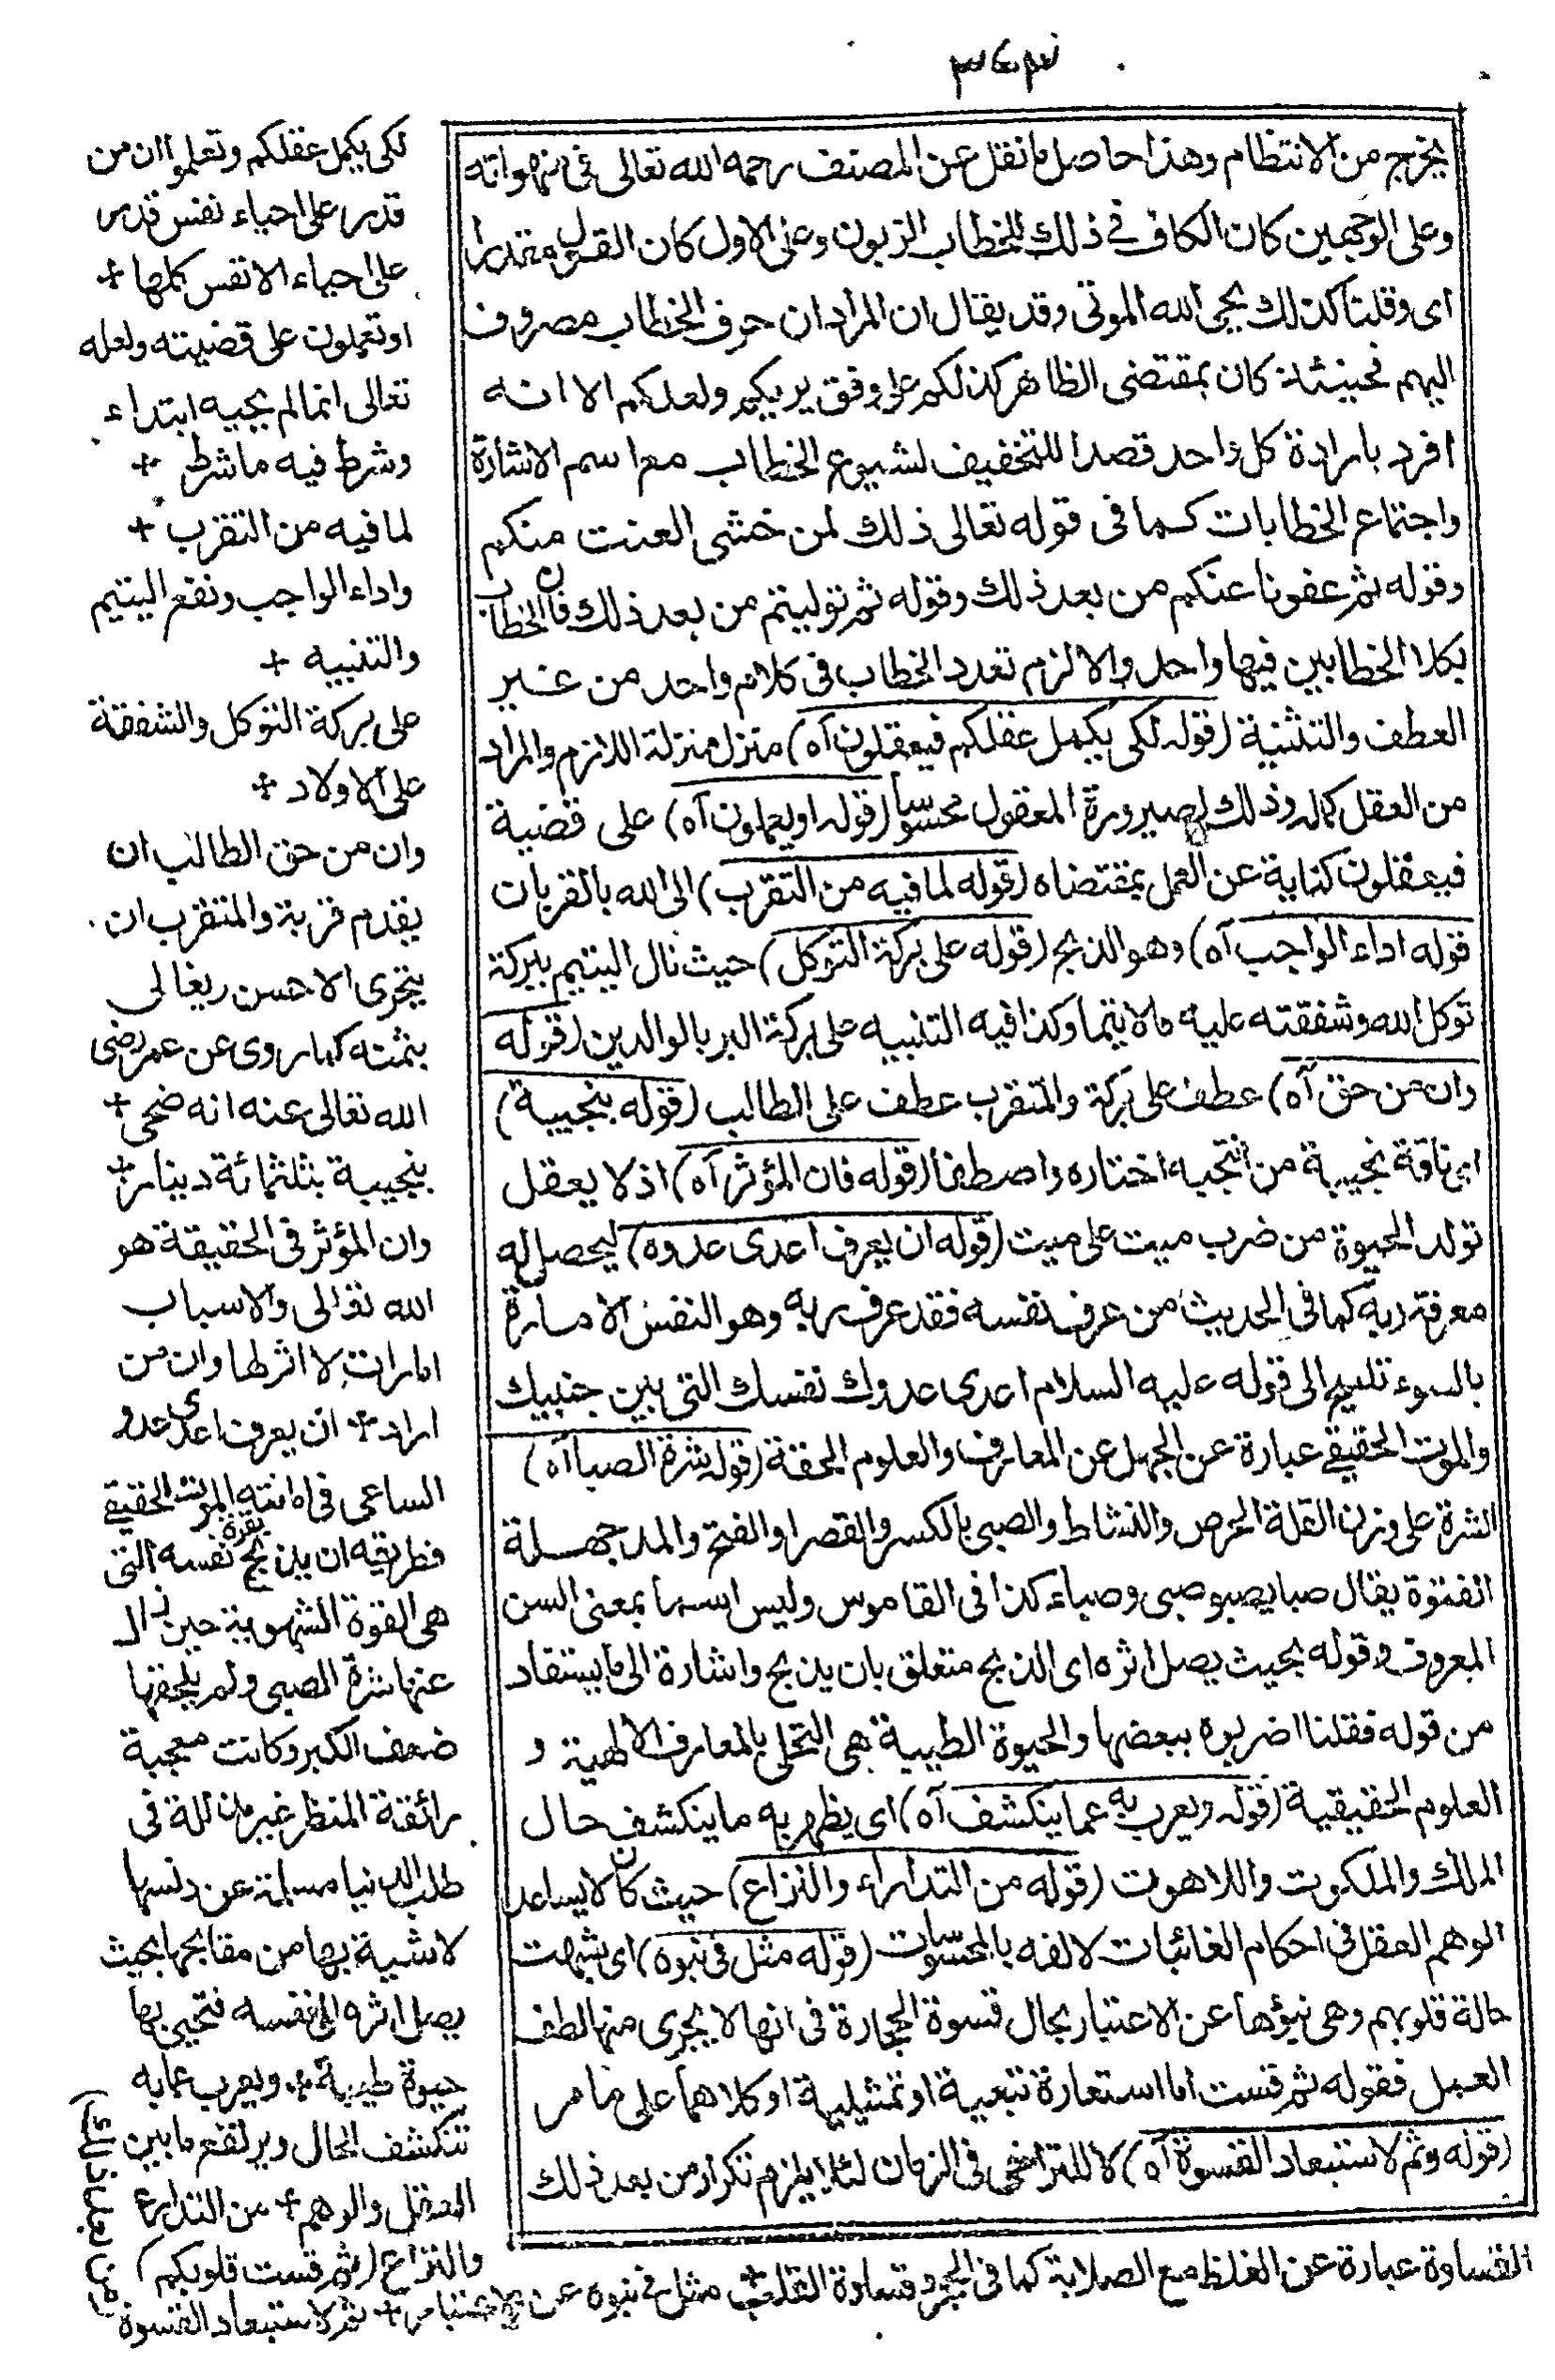 ٣٤٣
يخرج من الانتظام وهذا حاصل ما نقل عن المصنف رحمه الله تعالى فى منهواته
وعلى الوجهين كان الكاف في ذلك للخطاب الزبون وعلى الاول كان القول مقدرا
اى وقلنا كذلك يحيى الله الموتى وقد يقال ان المراد ان حرف الخطاب مصروف
اليهم فحينئذ كان بمقتضى الظاهر كذلكم على وفق يريكم ولعلكم الا انه
افرد بارادة كل واحد قصدا للتخفيف لشيوع الخطاب مع اسم الاشارة
واجتماع الخطابات كما فى قوله تعالى ذلك لمن خشى العنت منكم
وقوله ثم عفونا عنكم من بعد ذلك وقوله ثم توليتم من بعد ذلك فان الخطاب
بكلا الخطابين فيها واحد والا لزم تعدد الخطاب فى كلام واحد من غير
العطف والتثنية (قوله لكى يكمل عقلكم فيعقلون آه) منزل منزلة اللازم والمراد
من العقل كماله وذلك لصيرورة المعقول محسوسا (قوله او يعملون آه) على قضية
فيعقلون كناية عن العمل بمقتضاه (قوله لما فيه من التقرب) الى الله بالقربان
قوله اداء الواجب آه) وهو الذبح (قوله على بركة التوكل) حيث نال اليتيم ببركة
توكل الله وشفقته عليه مالا يتما وكذا فيه التنبيه على بركة البر بالوالدين (قوله
وان من حق آه) عطف على بركة والمتقرب عطف على الطالب (قوله بنجيبة)
اى ناقة نجيبة من انتجبه اختاره واصطفا (قوله فان المؤثر آه) اذ لا يعقل
تولد الحيوة من ضرب ميت على ميت (قوله ان يعرف اعدى عدوه) ليحصل له
معرفة ربه كما فى الحديث من عرف نفسه فقد عرف ربه وهو النفس الامارة
بالسوء تلميح الى قوله عليه السلام اعدى عدوك نفسك التى بين جنبيك
والموت الحقيقي عبارة عن الجهل عن المعارف والعلوم الحقة (قوله شرة الصبا آه)
الشرة على وزن القلة الحرص والنشاط والصبى بالكسر والقصر او الفتح والمد جهلة
الفتوة يقال صبا يصبو صبى وصباء كذا فى القاموس وليس اسما بمعنى السن
المعروف وقوله بحيث يصل اثره اى الذبح متعلق بان يذبح واشارة الى ما يستفاد
من قوله فقلنا اضربوه ببعضها والحيوة الطيبة هى التحلى بالمعارف الالهية و
العلوم الحقيقية (قوله ويعرب به عما ينكشف آه) اى يظهر به ما ينكشف حال
الملك والملكوت واللاهوت (قوله من التداراء والنزاع) حيث كان لا يساعد
الوهم العقل فى احكام الغائبات لالفه بالمحسوسات (قوله مثل فى نبوه) اى شبهت
حالة قلوبهم وهى نبؤها عن الاعتبار بحال قسوة الحجارة فى انها لا يجرى منها لطف
العمل فقوله ثم قست اما استعارة تبعية او تمثيلية او كلاهما على ما مر
(قوله وثم لاستبعاد القسوة آه) لا للتراخى فى الزمان لئلا يلزم تكرار من بعد ذلك
لكى يكمل عقلكم وتعلموا ان من
قدر على احياء نفس قدر
على احياء الانفس كلها +
او تعملون على قضيته ولعله
تعالى انما لم يحييه ابتداء
وشرط فيه ما شرط +
لما فيه من التقرب +
واداء الواجب ونفع اليتيم
والتنبيه +
على بركة التوكل والشفقة
على الاولاد +
وان من حق الطالب ان
يقدم قربة والمتقرب ان
يتحرى الاحسن ويغالى
بثمنه كما روى عن عمر رضى
الله تعالى عنه انه ضحى +
بنجيبة بثلثمائة دينار +
وان المؤثر فى الحقيقة هو
الله تعالى والاسباب
امارات لا اثر لها وان من
اراد + ان يعرف اعدى عدو
الساعى فى اماتته الموت الحقيقي
فطريقه ان يذبح بقرة نفسه التى
هى القوة الشهوية حين زال
عنها شرة الصبى ولم يلحقها
ضعف الكبر وكانت معجبة
رائقة المنظر غير مذللة فى
طلب الدنيا مسلمة عن دنسها
لاشية بها من مقابحها بحيث
يصل اثره الى نفسه فتحيى بها
حيوة طيبة + ويعرب عما به
تنكشف الحال ويرتفع ما بين
العقل والوهم + من التدارء
والنزاع (ثم قست قلوبكم)
القساوة عبارة عن الغلظ مع الصلابة كما فى الحجر وقساوة القلب + مثل فى نبوه عن الاعتبار + ثم لاستبعاد القسوة
(من بعد ذلك)